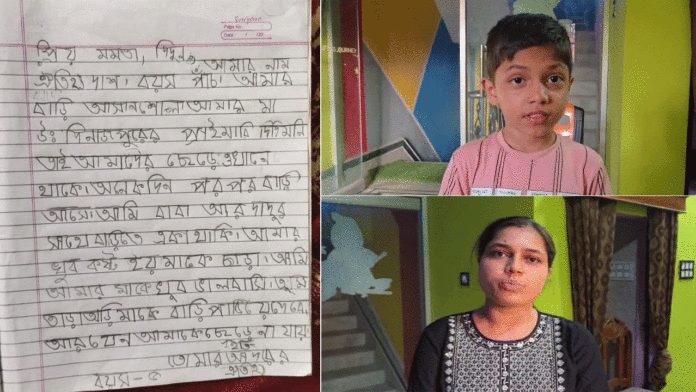 Evergreen
Page No.
Date: / /20
প্রিয় মমতা, দিদুন,
আমার নাম
ঐতিহ্য দাশ। বয়স পাঁচ। আমার
বাড়ি আসানশোল। আমার মা
উঃ দিনাজপুরের প্রাইমারি দিদিমনি
তাই আমাদের ছেড়ে ওখানে
থাকে। অনেকদিন পর পর বাড়ি
আসে। আমি বাবা আর দাদুর
সাথে বাড়িতে একা থাকি। আমার
খুব কষ্ট হয় মাকে ছাড়া। আমি
আমার মাকে খুব ভালবাসি। তুমি
তাড়াতাড়ি মাকে বাড়ি পাঠিয়ে দেবে,
আর যেন আমাকে ছেড়ে না যায়
তোমার আদরের
ঐতিহ্য
বয়স - ৫